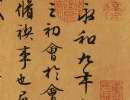 永和九年
之初會於會
脩禊事也